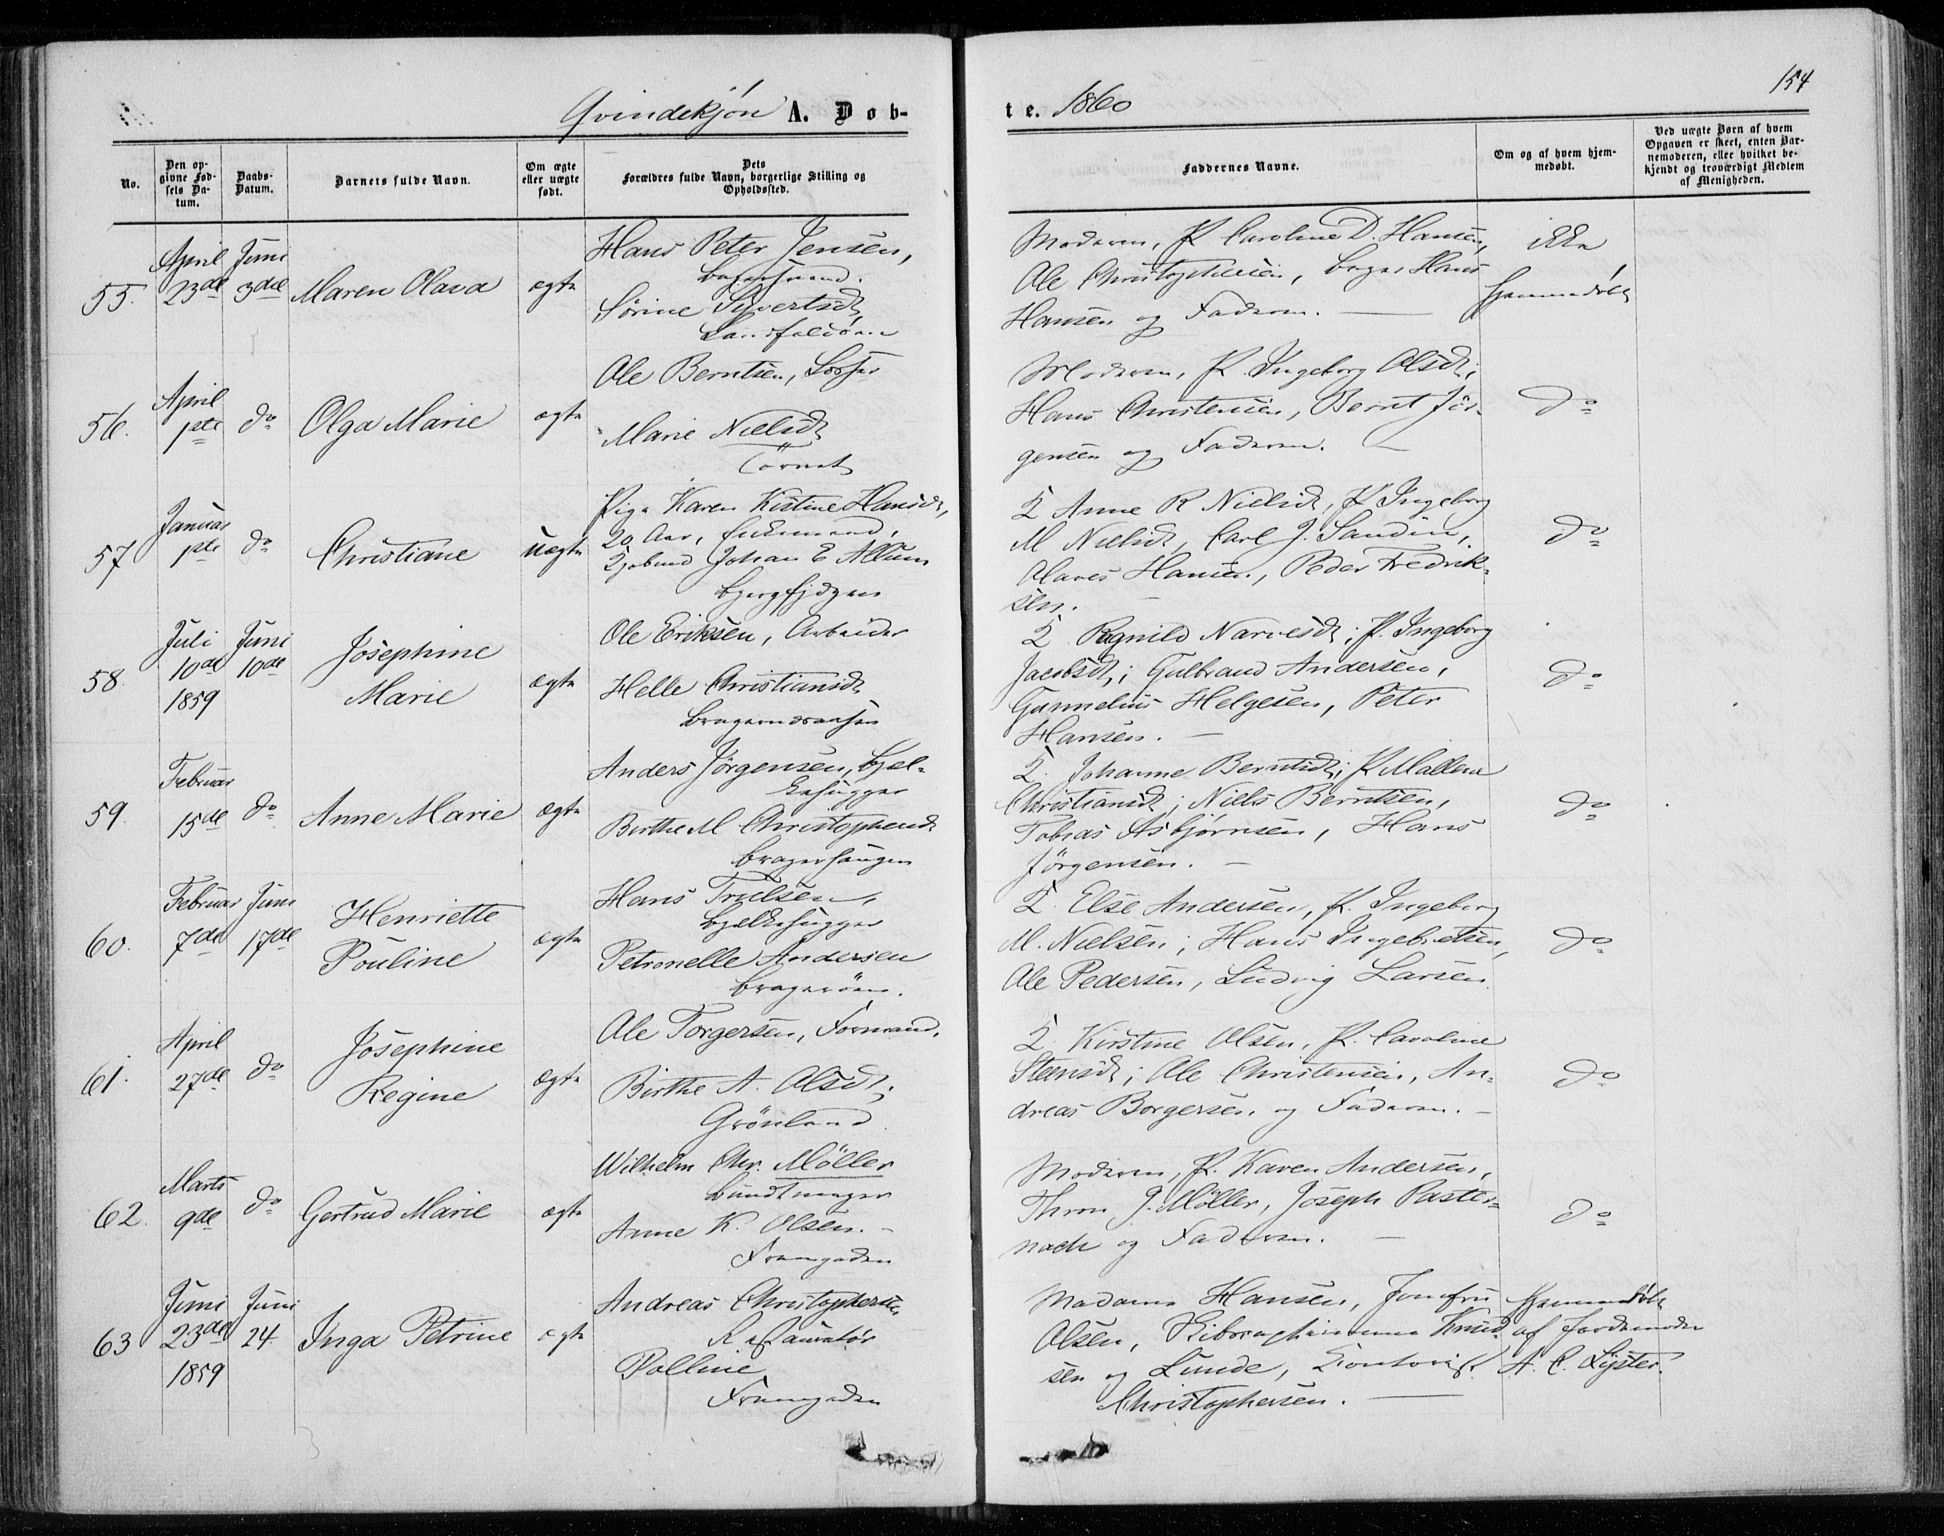 154
Qvindekjøn A. Døb-
te. 1860
No.
Den op-
givne Fød-
sels Da-
tum.
Daabs-
Datum.
Barnets fulde Navn.
Om ægte
eller uægte
født.
Dets
Forældres fulde Navn, borgerlige Stilling og
Opholdssted.
Faddernes Navne.
Om og af hvem hjem-
medøbt.
Ved uægte Børn af hvem
Opgaven er skeet, enten Bar-
nemoderen, eller hvilket be-
kjendt og troværdigt Medlem
af Menigheden.
55.
April
23de
Juni
3die
Maren Olava
ægte
Hans Peter Jensen,
Bagersvend.
Sørine Sivertsdt
Landfaldøen
Moderen, P. Caroline D. Hansen,
Ole Christophersen, Bager Hans
Hansen og Faderen.
ikke
hjemmedøbt
56.
April
1ste
do
Olga Marie
ægte
Ole Berntsen, Lodser
Marie Nielsdt
Tørnet
Moderen, P. Ingeborg Olsdt,
Hans Christensen, Bernt Jør-
gensen og Faderen.
do
57
Januar
1ste
do
Christiane
uægte
Pige Karen Kistine Hansdt,
20 Aar, Enkemand,
Johan E Allum
Bjergfjdgen
K Anne R Nielsdt, P Ingeborg
M Nielsdt, Carl J. Sandin,
Olaves Hansen, Peder Fredrik-
sen.
do
58.
Juli
10de
1859
Juni
10de
Josephine
Marie
ægte
Ole Eriksen, Arbeider
Helle Christiansdt
Bragernæsaasen
K. Ragnild Narvesdt; P. Ingeborg
Jacobsdt; Gulbrand Andersen,
Gunnelius Helgesen, Peter
Hansen.
do
59.
Februar
15de
do
Anne Marie
ægte
Anders Jørgensen, Bjæl-
kehugger
Birthe M Christophersdt
Bragerhaugen
K. Johanne Berntsdt; P Mallena
Christiansdt; Niels Berntsen,
Tobias Asbjørnsen, Hans
Jørgensen.
do
60.
Februar
7de
Juni
17de
Henriette
Pouline
ægte
Hans Trulsen,
Bjælkehugger
Petronelle Andersen
Bragerøen.
K. Else Andersen, P. Ingeborg
M. Nielsen; Hans Ingebretsen,
Ole Pedersen, Ludvig Larsen.
do
61.
April
27de
do
Josephine
Regine
ægte
Ole Torgersen, Formand.
Birthe A. Olsdt,
Grønland
K. Kirstine Olsen, P. Caroline
Steensdt; Ole Christensen, An-
dreas Borgersen og Faderen.
do
62.
Marts
9de
do
Gertrud Marie
ægte
Wilhelm Chr. Møller
Bundtmager
Anne K. Olsen.
Framgaden
Moderen, P. Karen Andersen,
Thron J. Møller, Joseph Paster-
nack og Faderen.
do
63
Juni
23de
1859
Juni
24.
Inga Petrine
ægte
Andreas Christophersen
Restauratør
Polline
Framgaden
Madame Hansen, Jomfru
Olsen, Knud-
sen og Lunde, Kontorist
Christophersen.
Hjemmedøbt
af Jordemoder
A. C. Lyster.